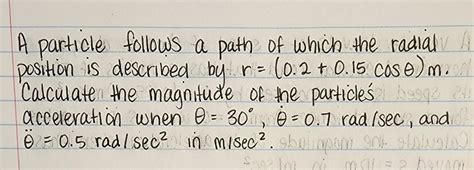 A particle follows a path of which the radial
position is described by r = (0.2 + 0.15 cos θ) m.
Calculate the magnitude of the particle's
acceleration when θ = 30°, θ̇ = 0.7 rad/sec, and
θ̈ = 0.5 rad/sec² in m/sec².